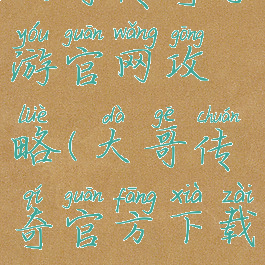 yóu guān wǎng gōng
游官网攻
lüè dà gē chuán
略(大哥传
qí guān fāng xià zǎi
奇官方下载